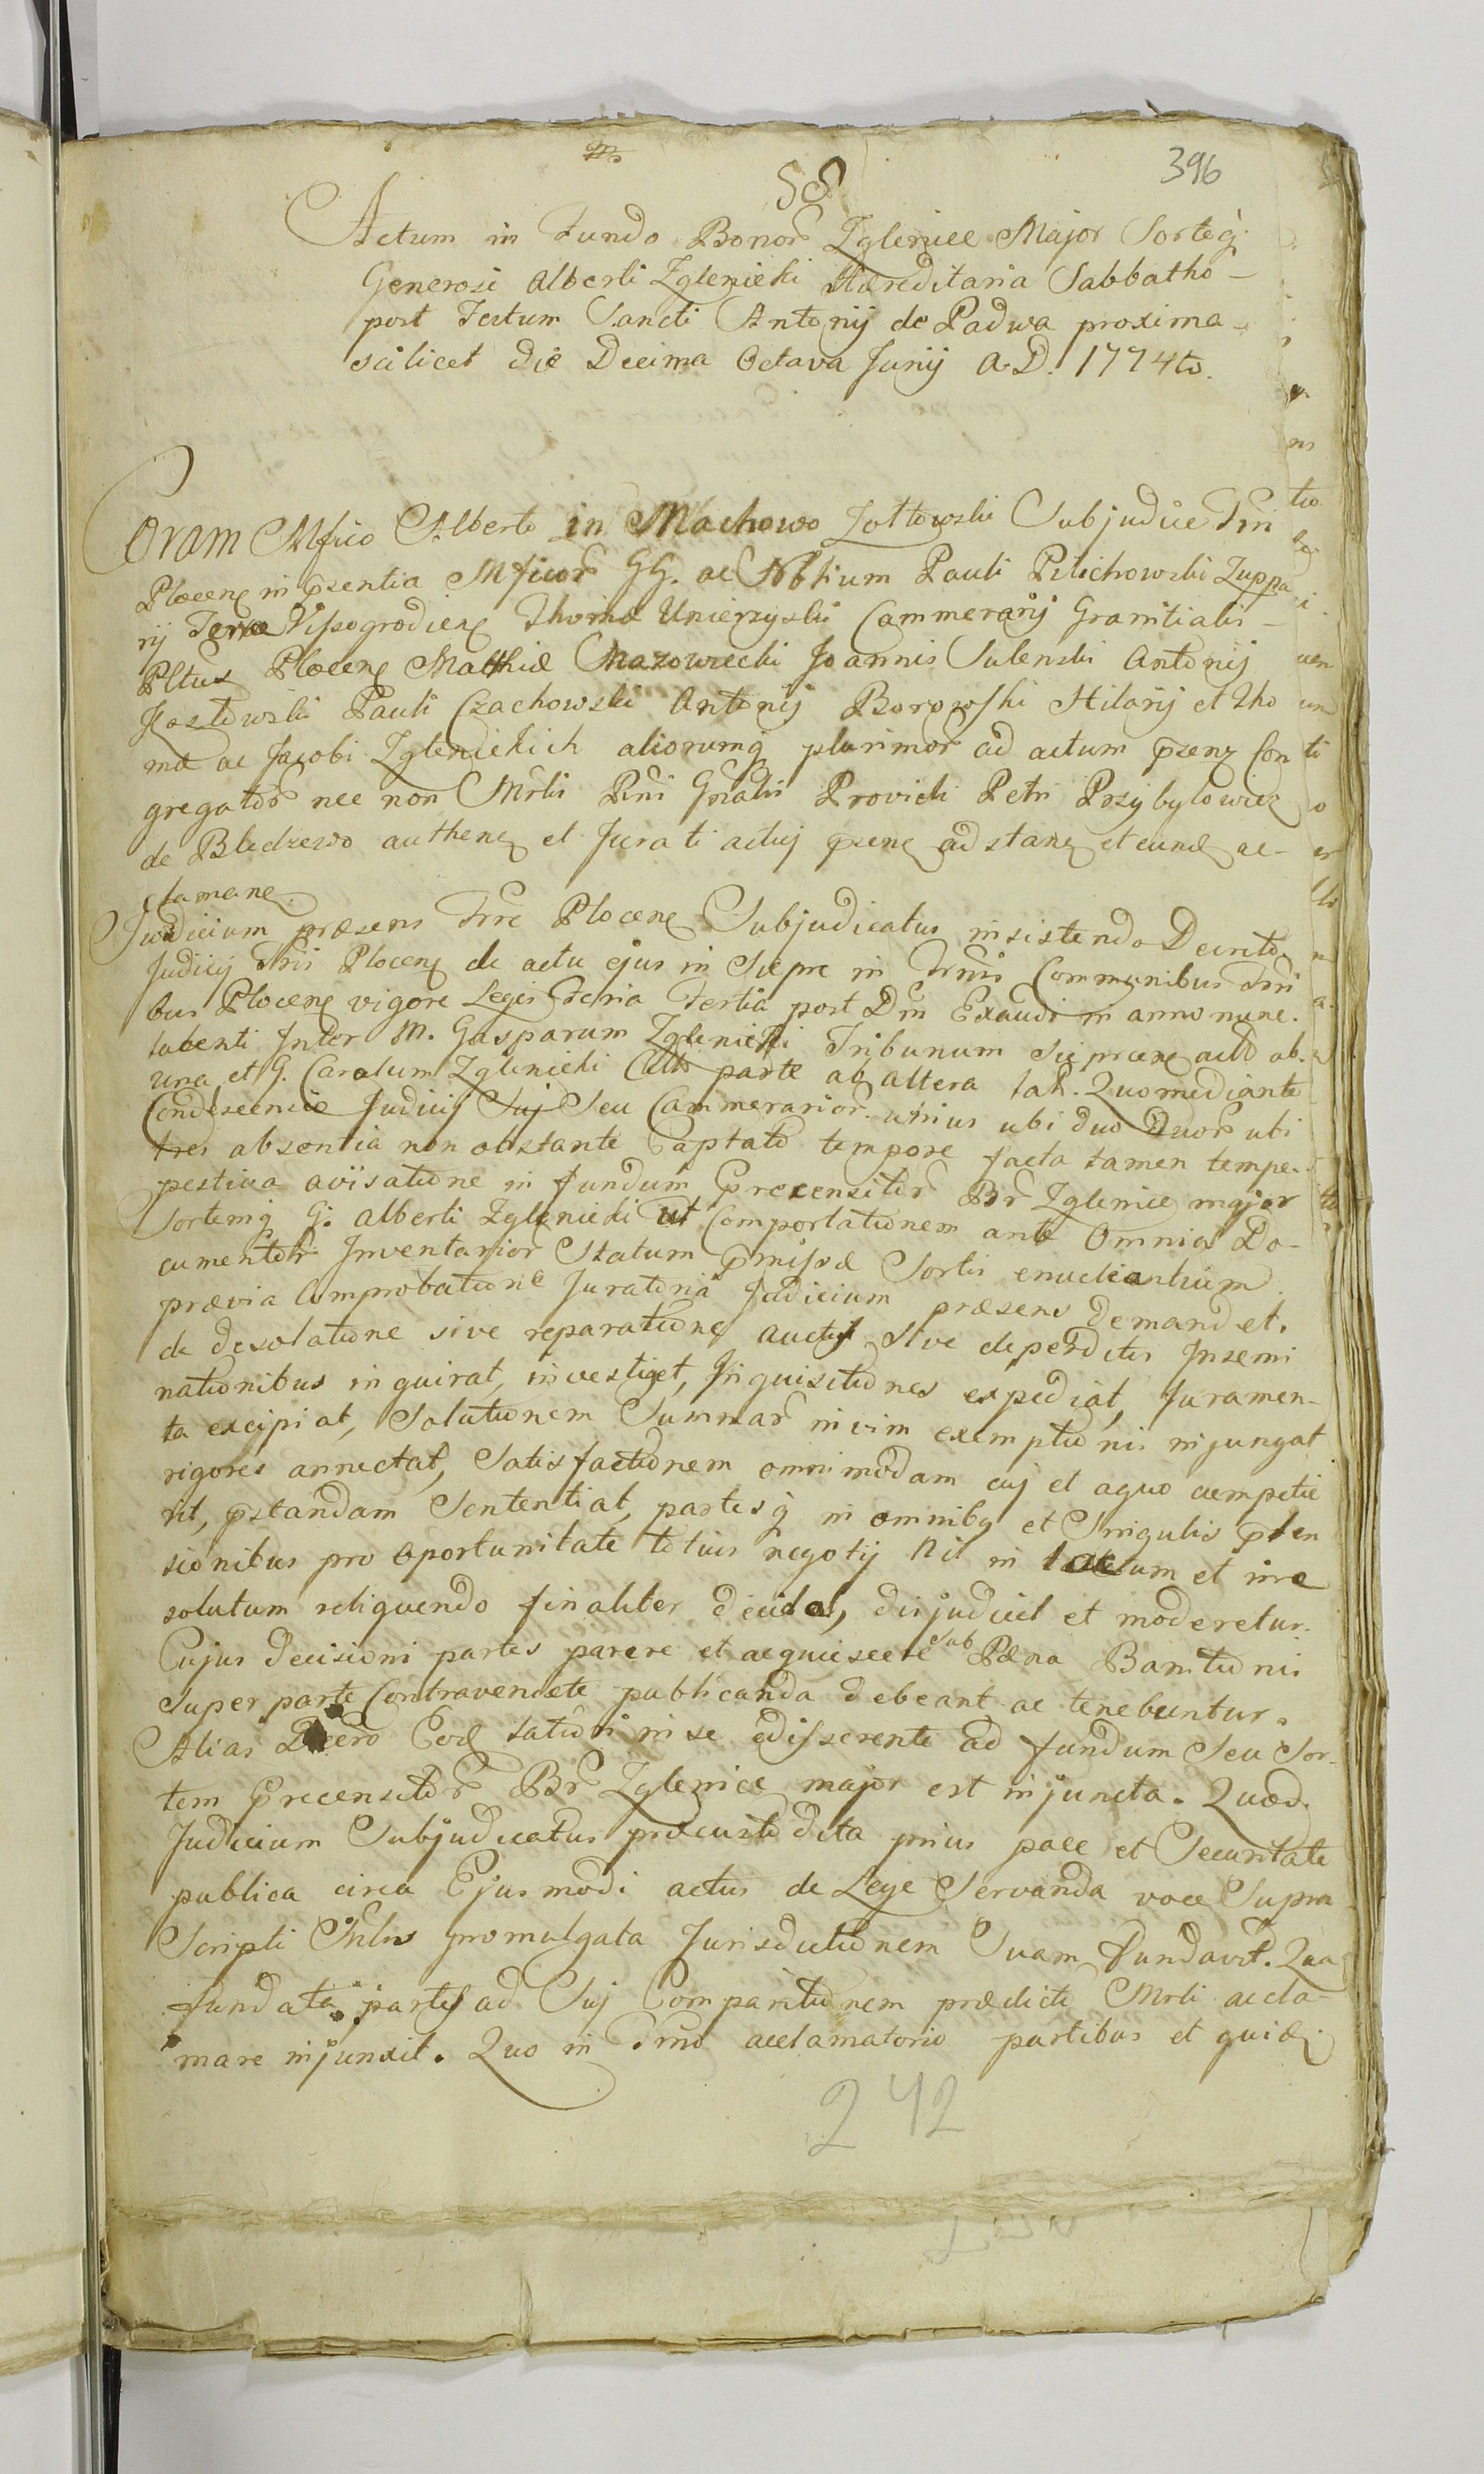 58
396
Actum in Fundo Bonor Zglenice Major Sorteq
Generosi Alberti Zglenicki Hæreditaria Sabbatho
post Festum Sancti Antonij de Padwa proxima
scilicet die Decima Octava Junij A.D. 1774to.
Coram Mfico Alberto in Machowo Zołtowski Subjudice Trri
Plocen in pſentia Mficor GG. ac Nobilium Pauli Pilichowski Zuppa
rij Terræ Viſsogrodien Thomæ Unierzyski Cammerarij Granitialis
Pltus Plocen Matthiæ Mazowiecki Joannis Sulenski Antonij
Kostowski Pauli Czachowski Antonij Borowski Hilarij et Tho
mæ ac Jacobi Zglenickich aliorumq plurimor ad actum pſens Con
gregator nec non Mrli Rni Gnalis Providi Petri Przybyłowicz
de Bledzewo authen et Jurati actuj pſenc adstan et eund ac-
clamanc.
Judicium præsens Trræ Plocen Subjudicatus insistendo Decreto
Judicij Trris Plocen de actu ejus in Siepre in Trmis Communibus Trri
bus Plocen vigore Legis Feria Tertia post Dm Exaudi in anno nunc.
labenti Inter M. Gasparum Zglenicki Tribunum Sieprcen actd ab
una et G. Carolum Zglenicki Citt parte ab altera lat. Quo mediante
Condescensie Judicij Suj Seu Cammerarior unius ubi duo Duor ubi
tres absentia non obstante Captato tempore facta tamen tempe-
pestiva avisatione in fundum precensitor Br Zglenice major
Sortemq G. Alberti Zglenicki ut Comportationem ante Omnia Do-
cumentor Inventarior Statum pmiſsæ Sortis enucleantium
prævia Comprobatione Juratoria Judicium præsens demandet.
de desolatione sive reparatione auctis sive deperditis Insemi
nationibus inquirat, investiget, Inquisitiones expediat, Juramen-
ta excipiat, Solutionem Summar in vim exemptionis injungat
rigores annectat, Satisfactionem omnimodam cuj et aquo competie
rit, pstandam Sententiat, partesq in omnibq et Singulis pten
sionibus pro oportunitate totius negotij Nil in tactum et irre
solutum reliquendo finaliter decidat, dijudicet et moderetur.
Cujus decisioni partes parere et acquiescere sub Pæna Banitionis
super parte Contraveniete publicanda debeant ac tenebuntur.
Alias Decro Eod latiori in se ediſserente ad fundum Seu Sor-
tem precensitor Br Zglenice major est injuncta. Quod
Judicium Subjudicatus præcustodita prius pace et Securitate
publica circa Ejusmodi actus de Lege Servanda voce Supra
Scripti Mrlis promulgata Jurisdictionem Suam fundavit. Qua
fundata partes ad Suj Comparitionem prædicto Mrli accla-
mare injunxit. Quo in Trmo acclamatorio partibus et quid
242